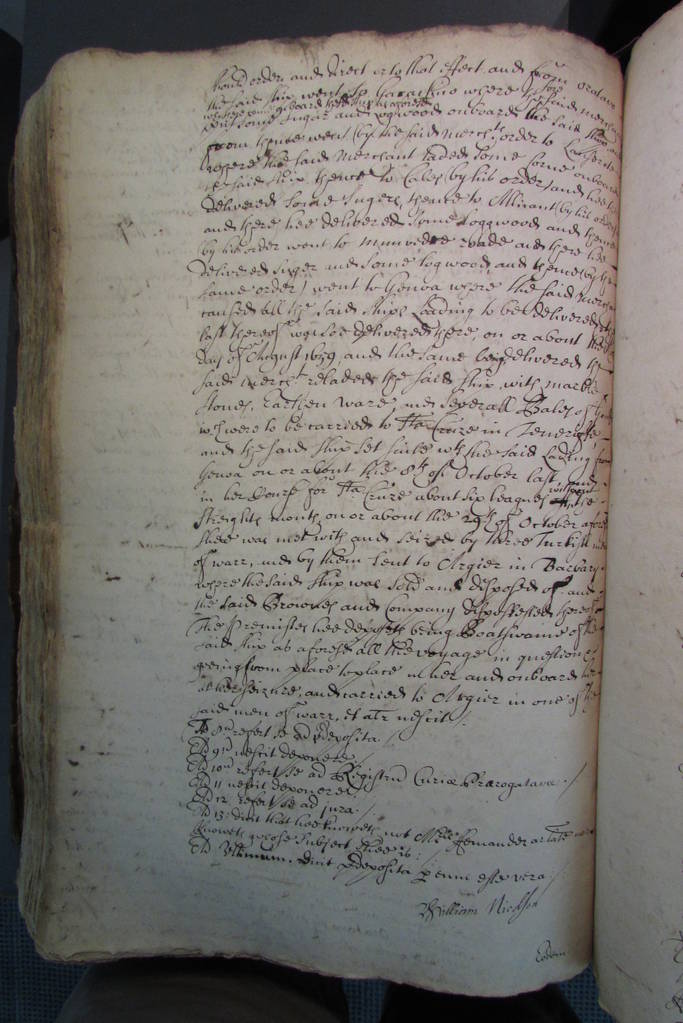 should order and direct or to that effect and from Orotava
the said ship went to Garachico where the said merchant
put some sugar and logwood onboard the said ship and
from thence went (by the said merchants order to
where the said Merchant laded some corne onboard
the said ship thence to Cales (by his order and hee
delivered some sugers, thence to Alicant (by his order
and there hee delivered some Loggwood and thence
(by his order went to rode and there hee
delivered suger and some logwood and thence (by the
same order) went to Genoa where the said Merchant
caused all the said ships loading to be delivered the
last thereof was soe delivered there, on or about the
day of August 1659, and the same being delivered the
said mercht reladed the said ship with marble
stones, Earthen ware, and severall Bales of
wch were to be carried to Sta Cruze in Teneriffe
and the said ship set saile wth the said lading from
Genoa on or about the 8th of October last, and
in her Course for Sta Cruze about six leagues without the
streights mouth on or about the 29th of October aforesd
shee was met with and seized by three Turkish men
of warr, and by them sent to Argier in Barbary
where the said ship was sold and disposed of and
the said Browne and Company dispossessed thereof
The premisses hee deposeth being Boatswaine of the
said ship as aforesd all the voyage in question &
goeing from place to place in her and onboard her
at her seizure, and carried to Argier in one of the
said men of warr, et alr nescit.
To 8um refert se ad predeposita.
Ad 9um nescit deponere.
Ad 10um refert se ad Registrum Curiæ Prærogativæ.
Ad 11 nescit deponere.
Ad 12 refert se ad jura.
Ad 13 dicit that hee knoweth not Hernandez
knoweth whose subject hee is.
Ad Ultimum dicit predeposita per eum esse vera.
William
Eodem